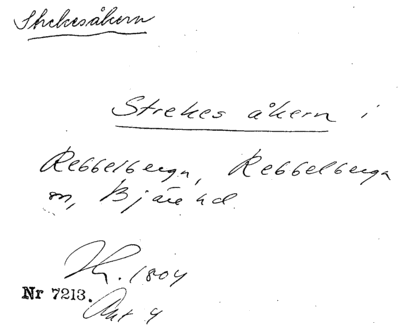 Strekesåkern
Strekes åkern i
Rebbelberga, Rebbelberga
sn, Bjäre hd.
1804
Nr 7213.
Akt 4